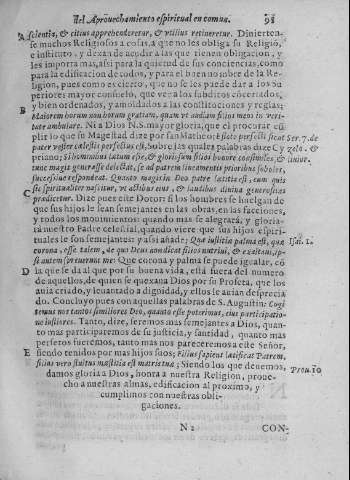 del Aprouechamiento espiritual en comun. 98
A scientia, & citius apprehenderetur, & vtilius retineretur. Dinierten-
se muchos Religiosos a cosas, a que no les obliga su Religiõ,
e instituto, y dexan de acudir a las que tienen obligacion, y
les importa mas, assi para la quietud de sus conciencias, como
para la edificacion de todos, y para el buen nombre de la Re-
ligion, pues como es cierto, que no se les puede dar a los Su-
periores mayor consuelo, que ver a los subditos concertados,
y bien ordenados, y amoldados a las constituciones y reglas;
B Maiorem horum non habeo gratiam, quam vt audiam filios meos in veri-
tate ambulare. Ni a Dios N.S. mayor gloria, que el procurar cũ-
plir lo que su Magestad dize por san Matheo: Estote perfecti sicut Ser. 7. de
pater vester cælestis perfectus est. Sobre las quales palabras dize Cy zelo. &
priano; Si hominibus lætum est, & gloriosum filios habere consimiles, & liuor.
tunc magis generasse delectat, si ad patrem lineamentis prioribus soboles,
successiua respondeat. Quanto magis in Deo patre lætitia est, cum quis
sic spiritualiter nascitur, vt actibus eius, & laudibus diuina generositas
C prædicetur. Dize pues este Dotor: si los hombres se huelgan de
que sus hijos le sean semejantes en las obras, en las facciones,
y todos los mouimientos: quando mas se alegrará, y gloria-
rá nuestro Padre celestial, quando viere que sus hijos espiri-
tuales le son semejantes: y assi añade; Quæ iustitiæ palma est, quæ Isai. 1.
corona, esse talem, de quo Deus non dicat filios nutriui, & exaltaui, ip-
si autem spreuerunt me: Que corona y palma se puede igualar, cõ
D la que se da al que por su buena vida, está fuera del numero
de aquellos, de quien se quexaua Dios por su Profeta, que los
auia criado, y leuantado a dignidad, y ellos le auian desprecia
do. Concluyo pues con aquellas palabras de S. Augustin: Cogi
temus nos tanto similiores Deo, quanto esse poterimus, eius participatio-
ne iustiores. Tanto, dize, seremos mas semejantes a Dios, quan-
to mas participaremos de su justicia, y santidad, quanto mas
perfetos fueremos, tanto mas nos pareceremos a este Señor,
E siendo tenidos por mas hijos suos; Filius sapiens lætificat Patrem,
filius vero stultus mæstitia est matri suæ; Siendo los que deuemos, Prou. 10
damos gloria a Dios, honra a nuestra Religion, proue-
cho a nuestras almas, edificacion al proximo, y
cumplimos con nuestras obli-
gaciones.
N 2 CON-